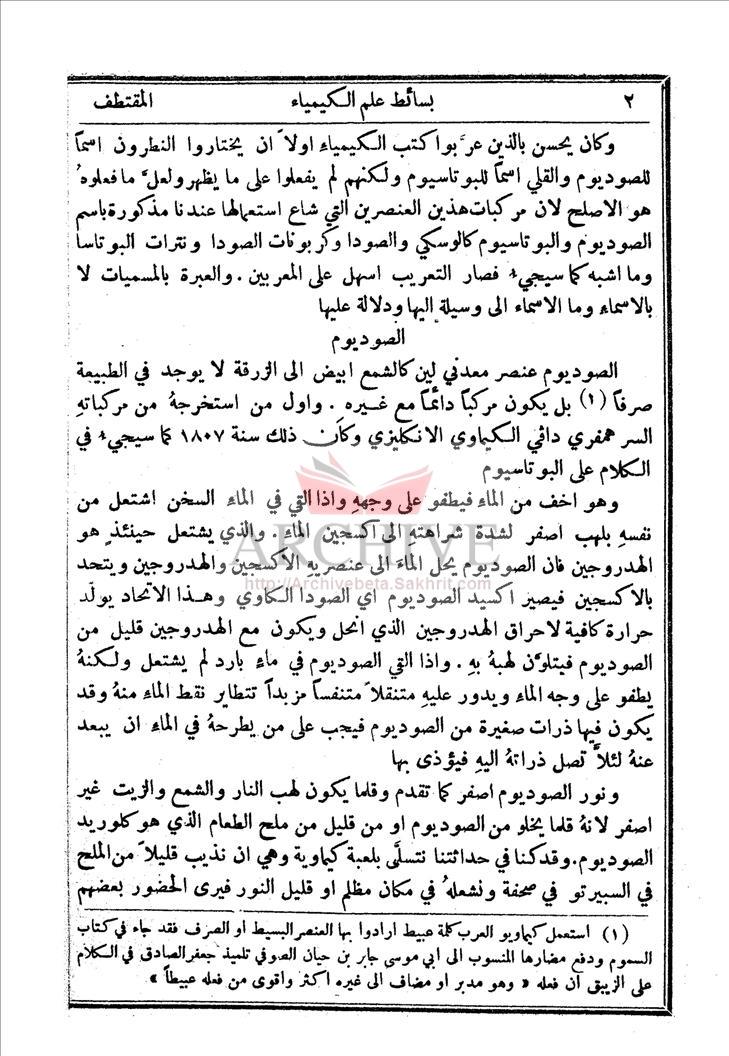 ٢ بسائط علم الكيمياء المقتطف
وكان يحسن بالذين عرَّبوا كتب الكيمياء اولاً ان يختاروا النطرون اسماً
للصوديوم والقلي اسماً للبوتاسيوم ولكنهم لم يفعلوا على ما يظهر ولعلَّ ما فعلوهُ
هو الاصلح لان مركبات هذين العنصرين التي شاع استعمالها عندنا مذكورة باسم
الصوديوم والبوتاسيوم كالوسكي والصودا وكربونات الصودا ونترات البوتاسا
وما اشبه كما سيجيءُ فصار التعريب اسهل على المعربين . والعبرة بالمسميات لا
بالاسماءِ وما الاسماء الى وسيلة اليها ودلالة عليها
الصوديوم
الصوديوم عنصر معدني لين كالشمع ابيض الى الزرقة لا يوجد في الطبيعة
صرفاً (١) بل يكون مركباً دائماً مع غيره . واول من استخرجهُ من مركباتهِ
السر همفري داڤي الكيماوي الانكليزي وكان ذلك سنة ١٨٠٧ كما سيجيءُ في
الكلام على البوتاسيوم
وهو اخف من الماءِ فيطفو على وجههِ واذا القي في الماءِ السخن اشتعل من
نفسهِ بلهب اصفر لشدة شراهتهِ الى اكسجين الماءِ . والذي يشتعل حينئذٍ هو
الهدروجين فان الصوديوم يحل الماءَ الى عنصريهِ الاكسجين والهدروجين ويتحد
بالاكسجين فيصير اكسيد الصوديوم اي الصودا الكاوي وهذا الاتحاد يولّد
حرارة كافية لاحراق الهدروجين الذي انحل ويكون مع الهدروجين قليل من
الصوديوم فيتلوَّن لهبهُ بهِ . واذا القي الصوديوم في ماءٍ بارد لم يشتعل ولكنهُ
يطفو على وجه الماءِ ويدور عليهِ متنقلاً متنفساً مزبداً تتطاير نقط الماءِ منهُ وقد
يكون فيها ذرات صغيرة من الصوديوم فيجب على من يطرحهُ في الماءِ ان يبعد
عنهُ لئلاَّ تصل ذراتهُ اليهِ فيؤذى بها
ونور الصوديوم اصفر كما تقدم وقلما يكون لهب النار والشمع والزيت غير
اصفر لانهُ قلما يخلو من الصوديوم او من قليل من ملح الطعام الذي هو كلوريد
الصوديوم. وقد كنا في حداثتنا نتسلَّى بلعبة كيماوية وهي ان نذيب قليلاً من الملح
في السبيرتو في صحفة ونشعلهُ في مكان مظلم او قليل النور فيرى الحضور بعضهم
(١) استعمل كيماويو العرب كلمة عبيط ارادوا بها العنصر البسيط او الصرف فقد جاء في كتاب
السموم ودفع مضارها المنسوب الى ابي موسى جابر بن حيان الصوفي تلميذ جعفر الصادق في الكلام
على الزيبق ان فعله « وهو مدبر او مضاف الى غيره اكثر واقوى من فعله عبيطاً »
ARCHIVE
http://Archivebeta.Sakhrit.com